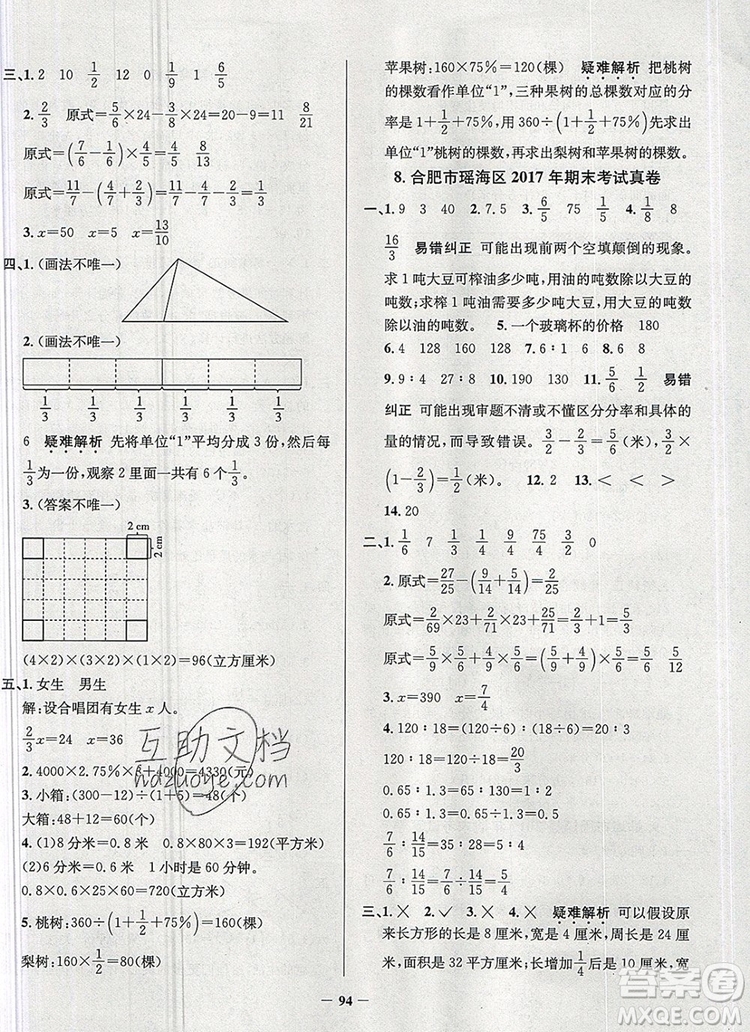 三、1. 2 10 1/2 12 0 1/9 1 6/5
2. 2/3 原式=5/6×24-3/8×24=20-9=11 8/21
原式=(7/6-1/6)×4/5=4/5 8/13
原式=11/7-(4/7+3/7)=11/7-1=4/7
3. x=50 x=5 x=13/10
四、1.(画法不唯一)
2.(画法不唯一)
1/3 1/3 1/3 1/3 1/3 1/3
6 疑难解析 先将单位“1”平均分成 3 份,然后每
1/3为一份,观察 2 里面一共有 6 个1/3。
3.(答案不唯一)
2 cm
2 cm
(4×2)×(3×2)×(1×2)=96(立方厘米)
五、1.女生 男生
解:设合唱团有女生 x 人。
2/3x=24 x=36
2. 4000×2.75%×3+4000=4330(元)
3.小箱:(300-12)÷(1+5)=48(个)
大箱:48+12=60(个)
4.(1)8 分米=0.8 米 0.8×80×3=192(平方米)
(2)6 分米=0.6 米 1 小时是 60 分钟。
0.8×0.6×25×60=720(立方米)
5.桃树:360÷(1+1/2+75%)=160(棵)
梨树:160×1/2=80(棵)
苹果树:160×75%=120(棵) 疑难解析 把桃树
的棵数看作单位“1”,三种果树的总棵数对应的分
率是 1+1/2+75%,用 360÷(1+1/2+75%)先求出
单位“1”桃树的棵数,再求出梨树和苹果树的棵数。
8. 合肥市瑶海区 2017 年期末考试真卷
一、1. 9 3 40 2. 7.5 3. 6/5 75 15 4. 1/8 8
16/3 易错纠正 可能出现前两个空填颠倒的现象。
求 1 吨大豆可榨油多少吨,用油的吨数除以大豆的
吨数;求榨 1 吨油需要多少吨大豆,用大豆的吨数
除以油的吨数。 5.一个玻璃杯的价格 180
6. 4 128 160 128 7. 6∶1 8. 6 8
9. 9∶4 27∶8 10. 190 130 11. 5/6 1/2 易错
纠正 可能出现审题不清或不懂区分分率和具体的
量的情况,而导致错误。3/2-2/3=5/6(米) 3/2×
(1-2/3)=1/2(米)。 12. 2 13. < < >
14. 20
二、1. 1/6 7 1/4 1/9 75/4 3/2 0
2. 原式=27/25-(9/14+5/14)=27/25-1=2/25
原式=2/69×23+2/71×23×71/23=2/3+1=5/3
原式=5/9×(5/9+6/9)÷5/6=5/9×11/9×6/5=22/27
3. x=390 x=7/4
4. 120∶18=(120÷6)∶(18÷6)=20∶3
120∶18=120÷18=120/18=20/3
0.65∶1.3=0.65÷0.65∶1.3÷0.65=1∶2
0.65∶1.3=0.65÷1.3=0.5
7/6∶14/15=35∶28=5∶4
7/6∶14/15=7/6÷14/15=7/6×15/14=5/4
三、1.× 2.✓ 3.× 4.× 5.× 疑难解析 可以假设原
来长方形的长是 8 厘米,宽是 4 厘米,周长为 24 厘
米,面积是 32 平方厘米,宽增加1/4后是 5 厘米,宽
94
互助文档
hdzuoye.com
答案圈
MXQE.COM